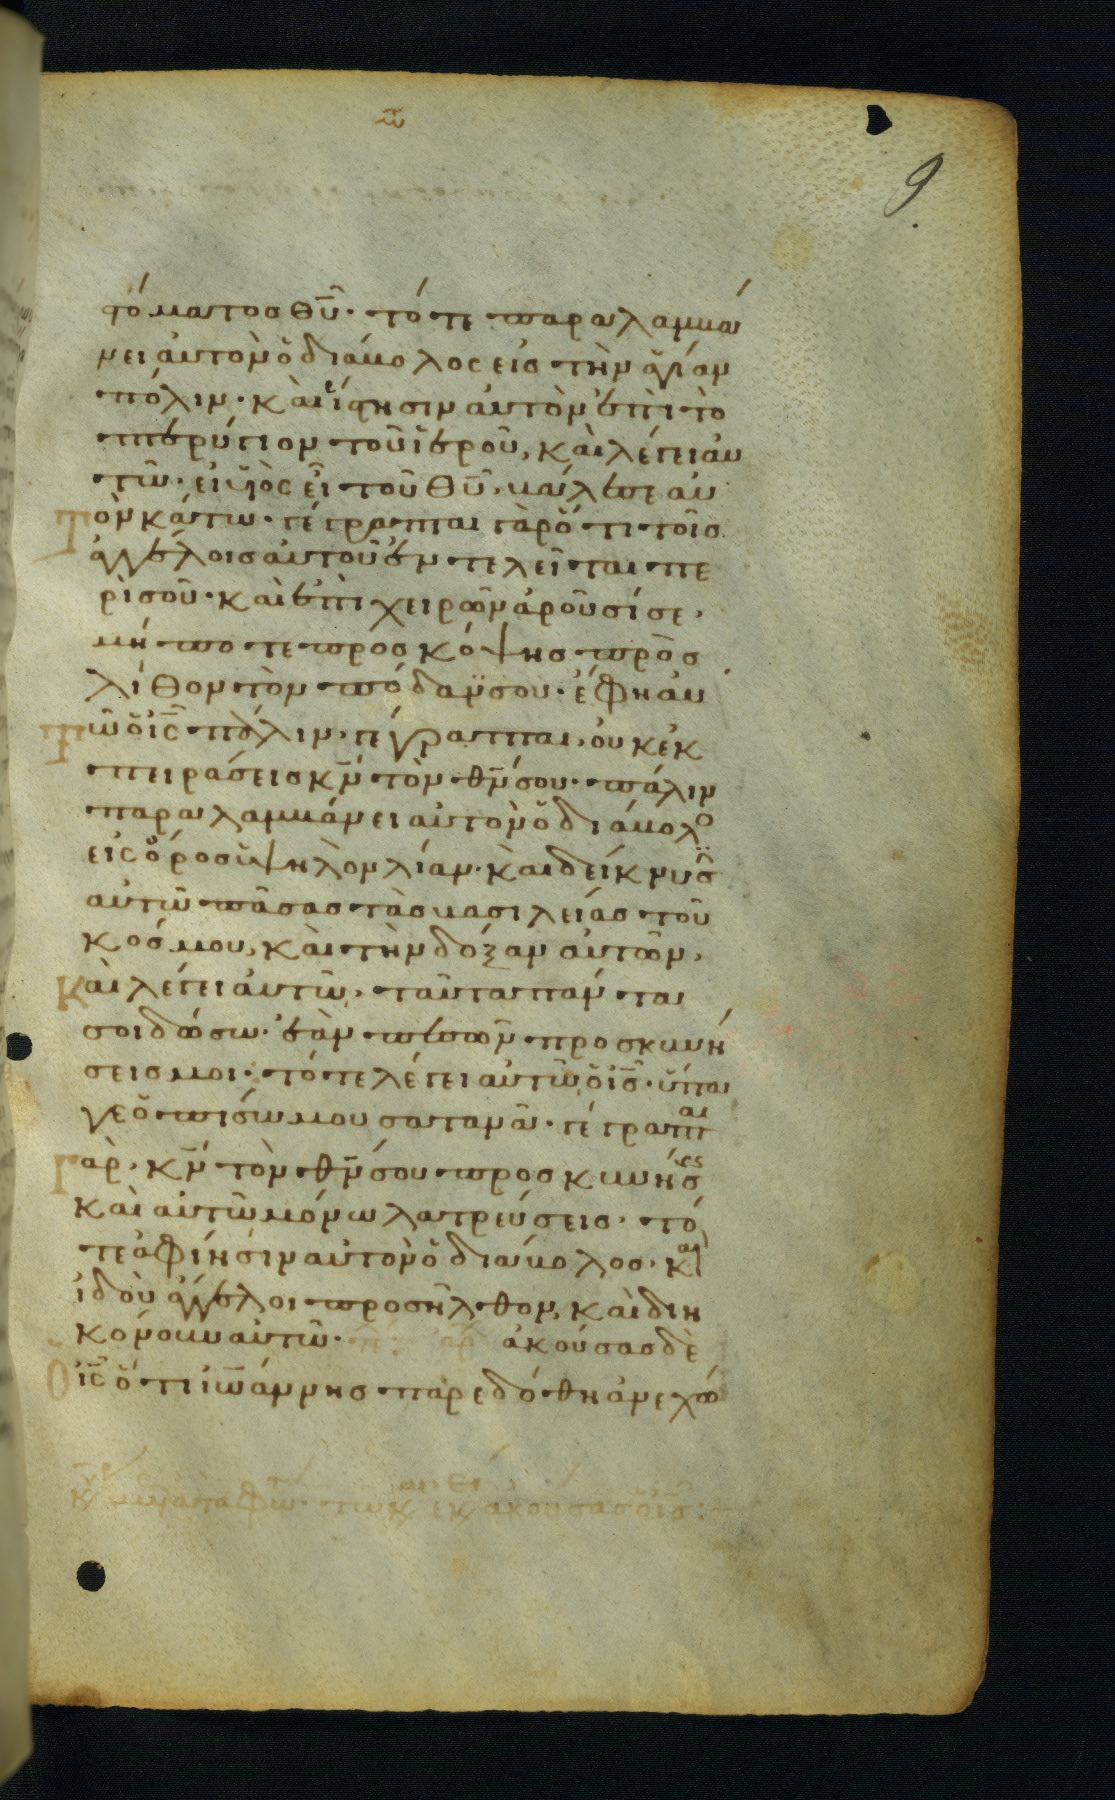 9
στόματος θῡ· τότε παραλαμβά
νει αὐτὸν ὁ διάβολος εἰς τὴν ἁγίαν
πόλιν· καὶ ἵστησιν αὐτὸν ἐπὶ τὸ
πτερύγιον τοῦ ἱεροῦ, καὶ λέγει αὐ
τῶ· εἰ υἱὸς εἶ τοῦ θῡ, βάλε σεαυ
τὸν κάτω· γέγραπται γὰρ ὅτι τοῖς
ἀγγέλοις αὐτοῦ ἐντελεῖται πε
ρὶ σοῦ· καὶ ἐπὶ χειρῶν ἀροῦσί σε,
μήποτε προσκόψης πρὸς
λίθον τὸν πόδα σου· ἔφη αὐ
τῶ ὁ ις̄ πάλιν, γέγραπται, οὐκ ἐκ
πειράσεις κν̄ τὸν θν̄ σου· πάλιν
παραλαμβάνει αὐτὸν ὁ διάβολο
εἰς ὄρος ὑψηλὸν λίαν· καὶ δείκνυσ
αὐτῶ πάσας τὰς βασιλείας τοῦ
κόσμου, καὶ τὴν δόξαν αὐτῶν,
καὶ λέγει αὐτῶ, ταῦτα πάντα
σοι δώσω· ἐὰν πεσὼν προσκυνή
σεις μοι· τότε λέγει αὐτῶ ὁ ις̄· ὕπα
γε ὀπίσω μου σατανᾶ· γέγραπται
γὰρ, κν̄ τὸν θν̄ σου προσκυνήσεις
καὶ αὐτῶ μόνω λατρεύσεις· τό
τε ἀφίησιν αὐτὸν ὁ διάβολος· καὶ
ἰδοὺ ἄγγελοι προσῆλθον, καὶ διη
κόνουν αὐτῶ· ἀκούσας δὲ
ὁ ις̄ ὅτι ἰω̄άννης παρεδόθη ἀνεχώ